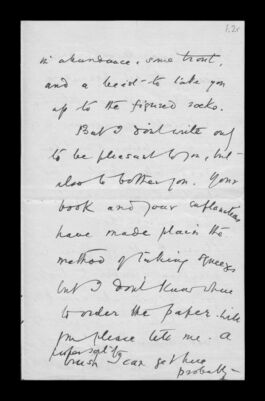 in abundance, some trout,
and a beast to take you
up to the figured rocks.
But I don't write only
to be pleasant to you, but
also to bother you. Your
book and your explanations
have made plain the
method of taking squeezes
but I don't know where
to order the paper. Will
you please tell me. A
proper sort of
brush I can get here
probably—